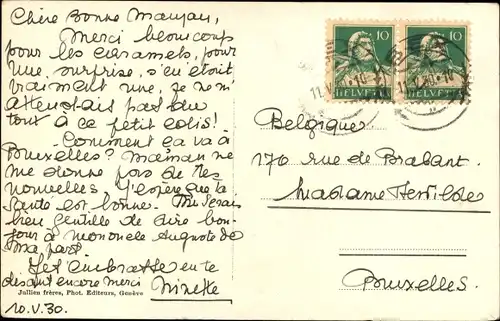 Chère Bonne Maman,
Merci beaucoup
pour les caramels, pour
une surprise, s'en était
vraiment une, je ne m'
attendais pas du
tout à ce petit colis!
Comment ça va à
Bruxelles? Maman ne
me donne pas de tes
nouvelles. J'espère que ta
santé est bonne. Tu serais
bien gentille de dire bon-
jour à mononcle Auguste de
ma part.
Je t'embrasse en te
disant encore merci
Ninette
10.V.30.
Jullien frères, Phot. Editeurs, Genève
10 10
HELVETIA HELVETIA
Belgique.
170 rue de Brabant.
Madame
Bruxelles.